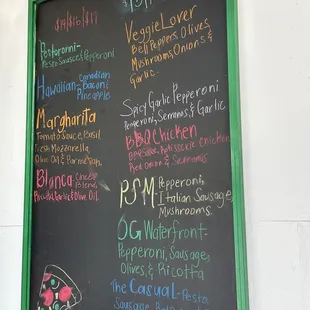 $14/$16/$17
Pestoronni-
Pesto Sauce, & Pepperoni
Hawaiian- Canadian
Bacon &
Pineapple
Margharita
Tomato Sauce, Basil
Fresh Mozzarella
Olive Oil & Parmesan
Blanca
Garlic & Olive Oil
Veggie Lover
Bell Peppers, Olives,
Mushrooms, Onions &
Garlic
Spicy Garlic Pepperoni
Pepperoni, Serranos, & Garlic
BBQ Chicken
BBQ Sauce, Rotisserie Chicken
Red Onion & Serranos
PSM Pepperoni,
Italian Sausage
Mushrooms.
OG Waterfront-
Pepperoni, Sausage,
Olives, & Ricotta
The Casual- Pesto
Sausage,